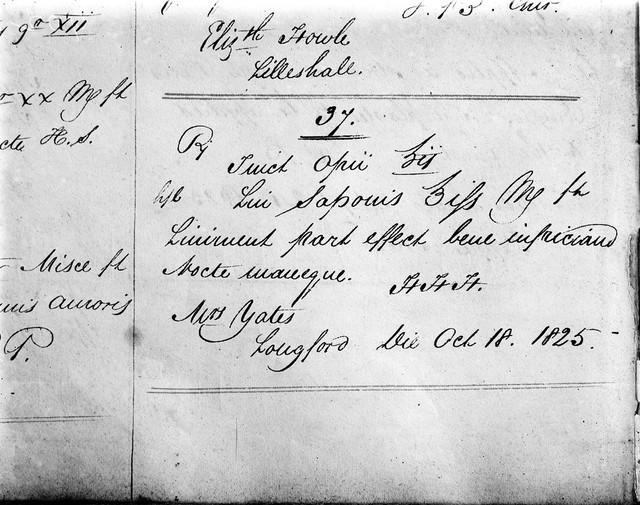 g. xii
xx Mg ft
H. S.
Misce ft
P.
Elizth Howle
Lilleshall.
37.
Rx Tinct Opii ℥ij
Lin Saponis ℥iſs Mg ft
Liniment part effect bene infriciand
Nocte maneque. H.H.H.
Mrs Yates
Longford Die Oct 18. 1825.